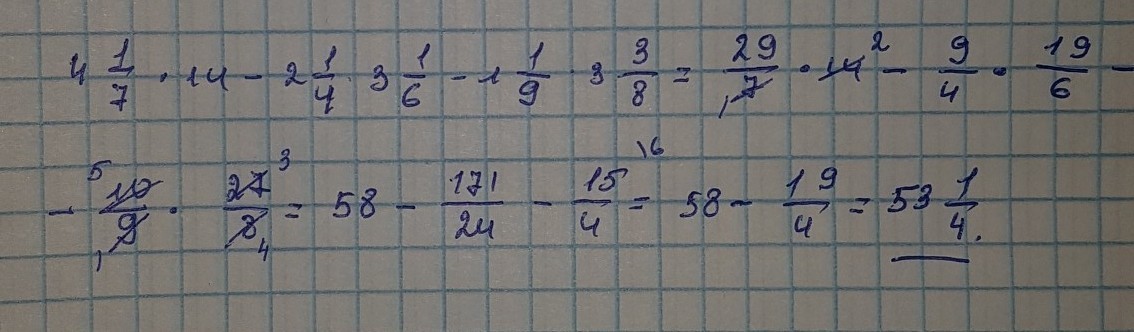 4 1/7 · 14 - 2 1/4 · 3 1/6 - 1 1/9 · 3 3/8 = 29/7 1 · 14 2 - 9/4 · 19/6 -
- 5 10/9 1 · 27/8 3 4 = 58 - 171/24 - 15/4 16 = 58 - 19/4 = 53 1/4.